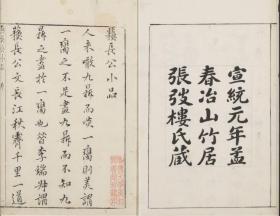 宣統元年孟
春冶山竹居
張弢樓氏藏
蘇長公小品
人未嘗九鼎而啖一臠則美謂
一臠之不足盡九鼎而不知九
鼎之盡於一臠也昔李端叔謂
蘇長公文長江秋霽千里一道